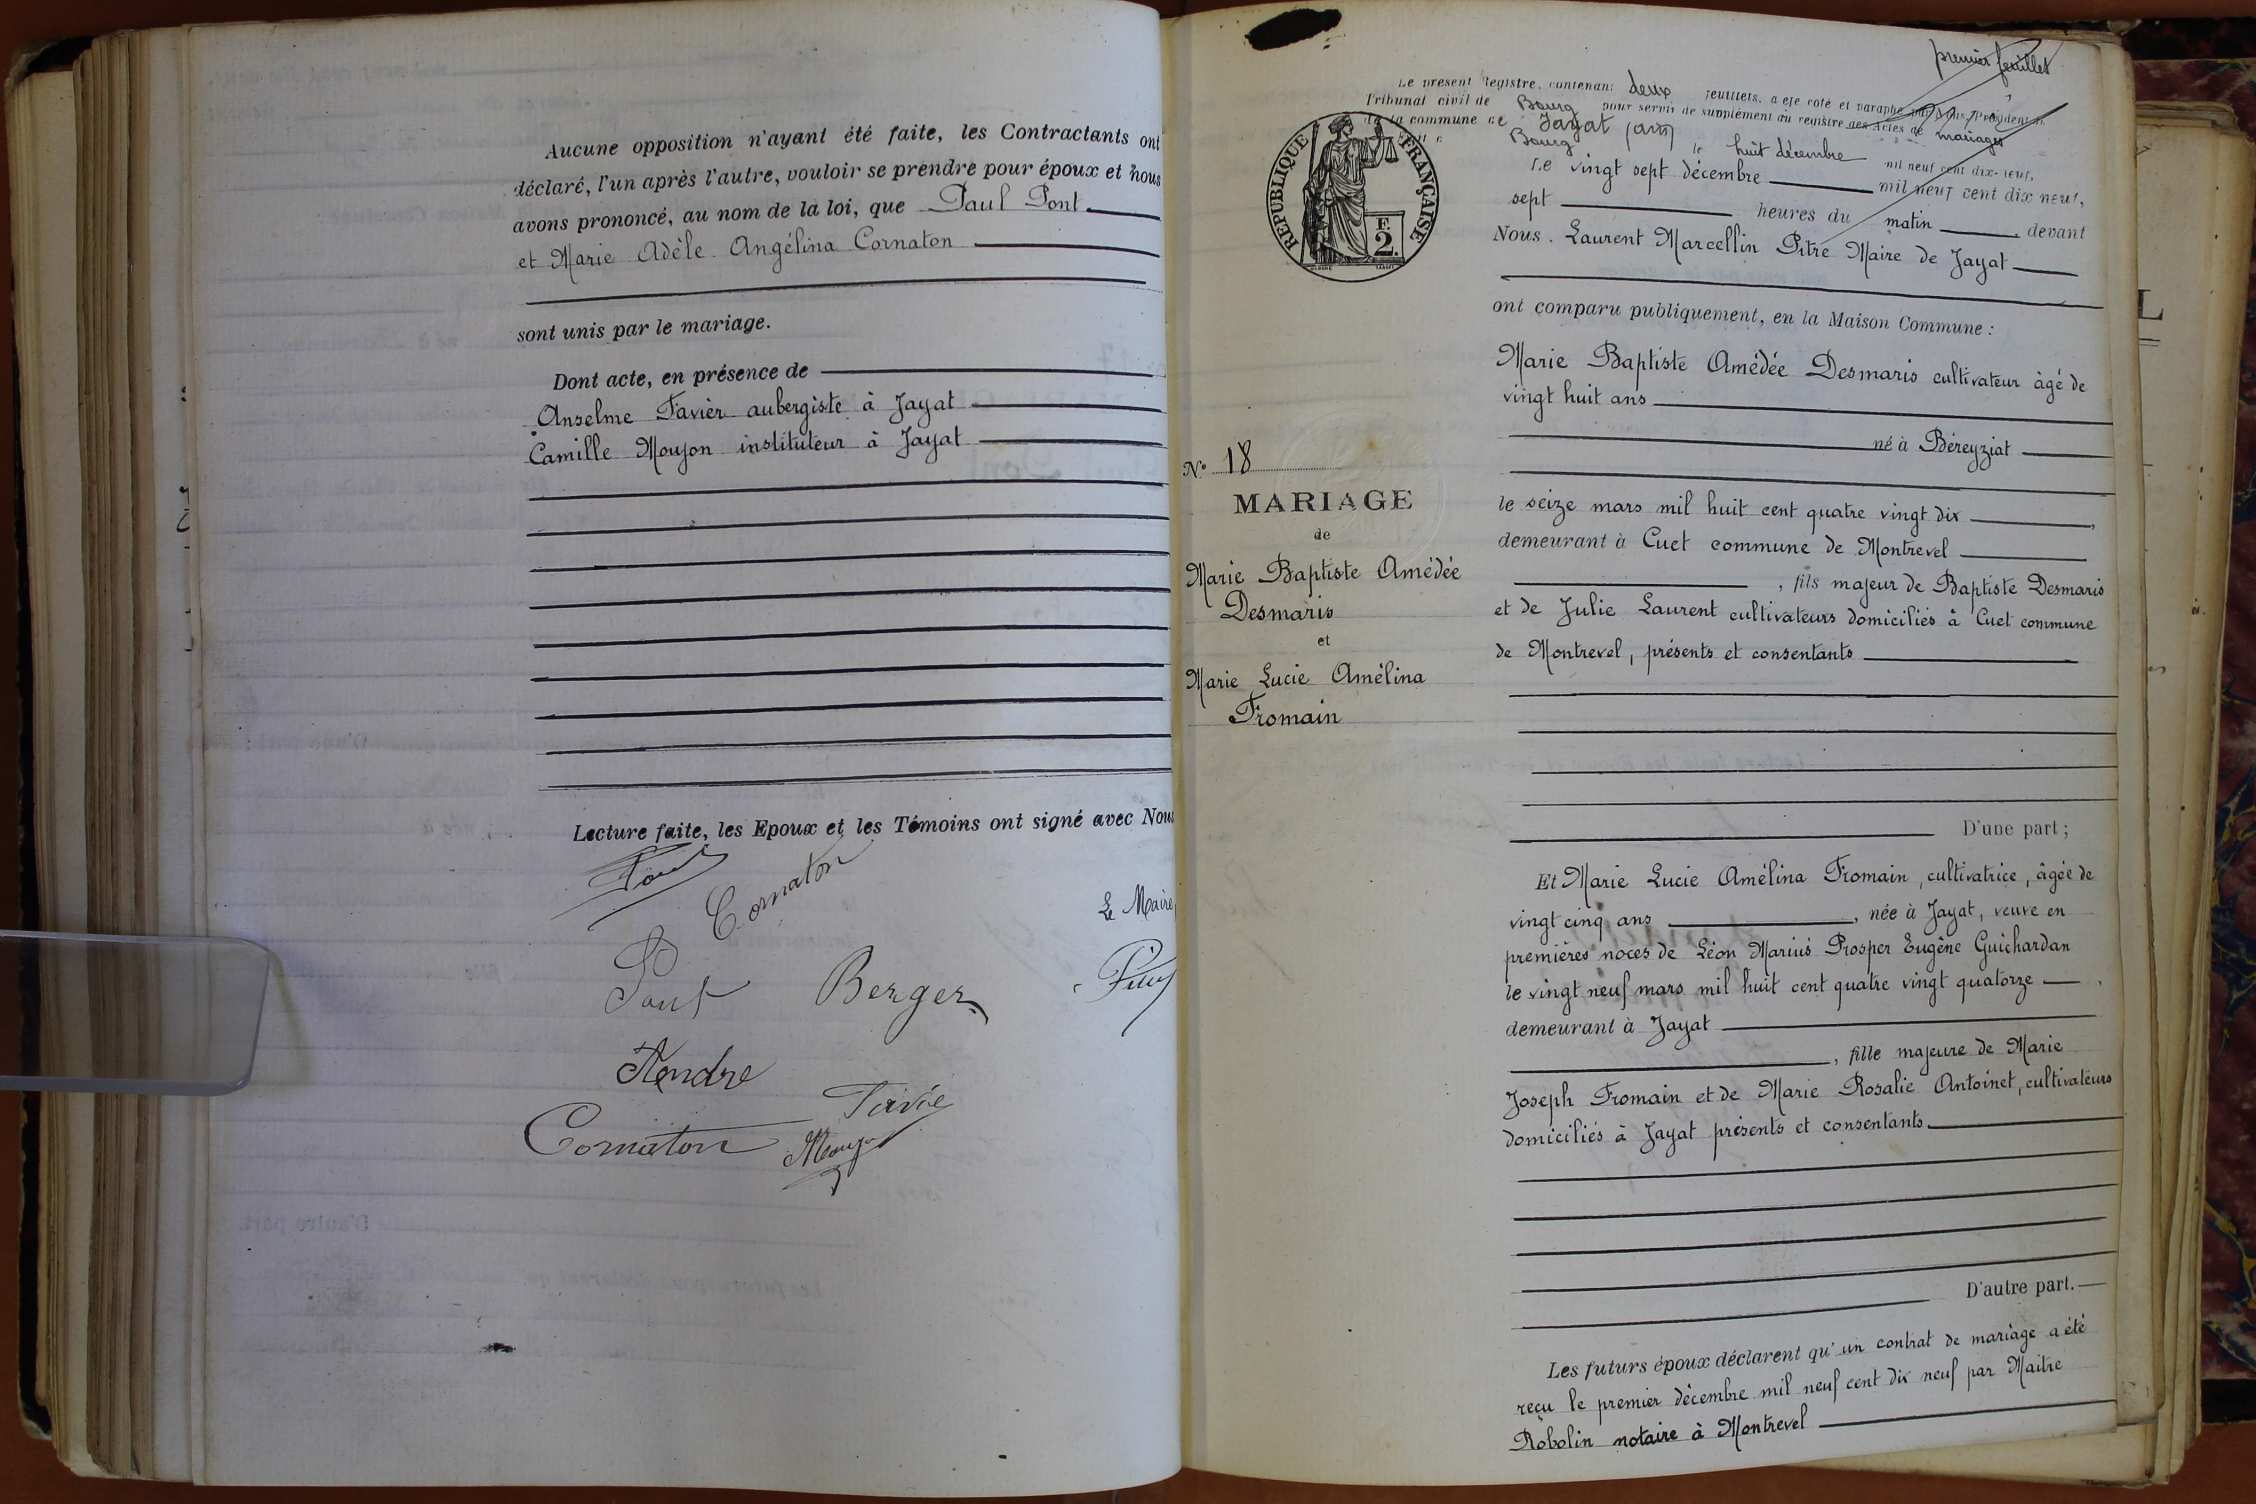 Aucune opposition n'ayant été faite, les Contractants ont
déclaré, l'un après l'autre, vouloir se prendre pour époux et nous
avons prononcé, au nom de la loi, que Paul Pont
et Marie Adèle Angélina Cornaton
sont unis par le mariage.
Dont acte, en présence de
Anselme Favier aubergiste à Jayat
Camille Moujon instituteur à Jayat
Lecture faite, les Epoux et les Témoins ont signé avec Nous
Cornaton
Le Maire,
Pont Berger
Tendre
Cornaton
premier feuillet
Le présent Registre, contenant deux feuillets, a été coté et paraphé par Nous, Président du
Tribunal civil de Bourg pour servir de supplément au registre des Actes de mariages
de la commune de Jayat (Ain)
Bourg le huit décembre mil neuf cent dix-neuf,
RÉPUBLIQUE FRANÇAISE
F.
2.
Le vingt sept décembre mil neuf cent dix neuf,
sept heures du matin, devant
Nous. Laurent Marcellin Pitre Maire de Jayat
ont comparu publiquement, en la Maison Commune :
Marie Baptiste Amédée Desmaris cultivateur âgé de
vingt huit ans
né à Béreyziat
le seize mars mil huit cent quatre vingt dix,
demeurant à Cuet commune de Montrevel
, fils majeur de Baptiste Desmaris
et de Julie Laurent cultivateurs domiciliés à Cuet commune
de Montrevel, présents et consentants
D'une part ;
N° 18
MARIAGE
de
Marie Baptiste Amédée
Desmaris
et
Marie Lucie Amélina
Fromain
Et Marie Lucie Amélina Fromain, cultivatrice, âgée de
vingt cinq ans, née à Jayat, veuve en
premières noces de Léon Marius Prosper Eugène Guichardan
le vingt neuf mars mil huit cent quatre vingt quatorze,
demeurant à Jayat
, fille majeure de Marie
Joseph Fromain et de Marie Rosalie Antoinet, cultivateurs
domiciliés à Jayat présents et consentants
D'autre part.
Les futurs époux déclarent qu'un contrat de mariage a été
reçu le premier décembre mil neuf cent dix neuf par Maître
Robolin notaire à Montrevel